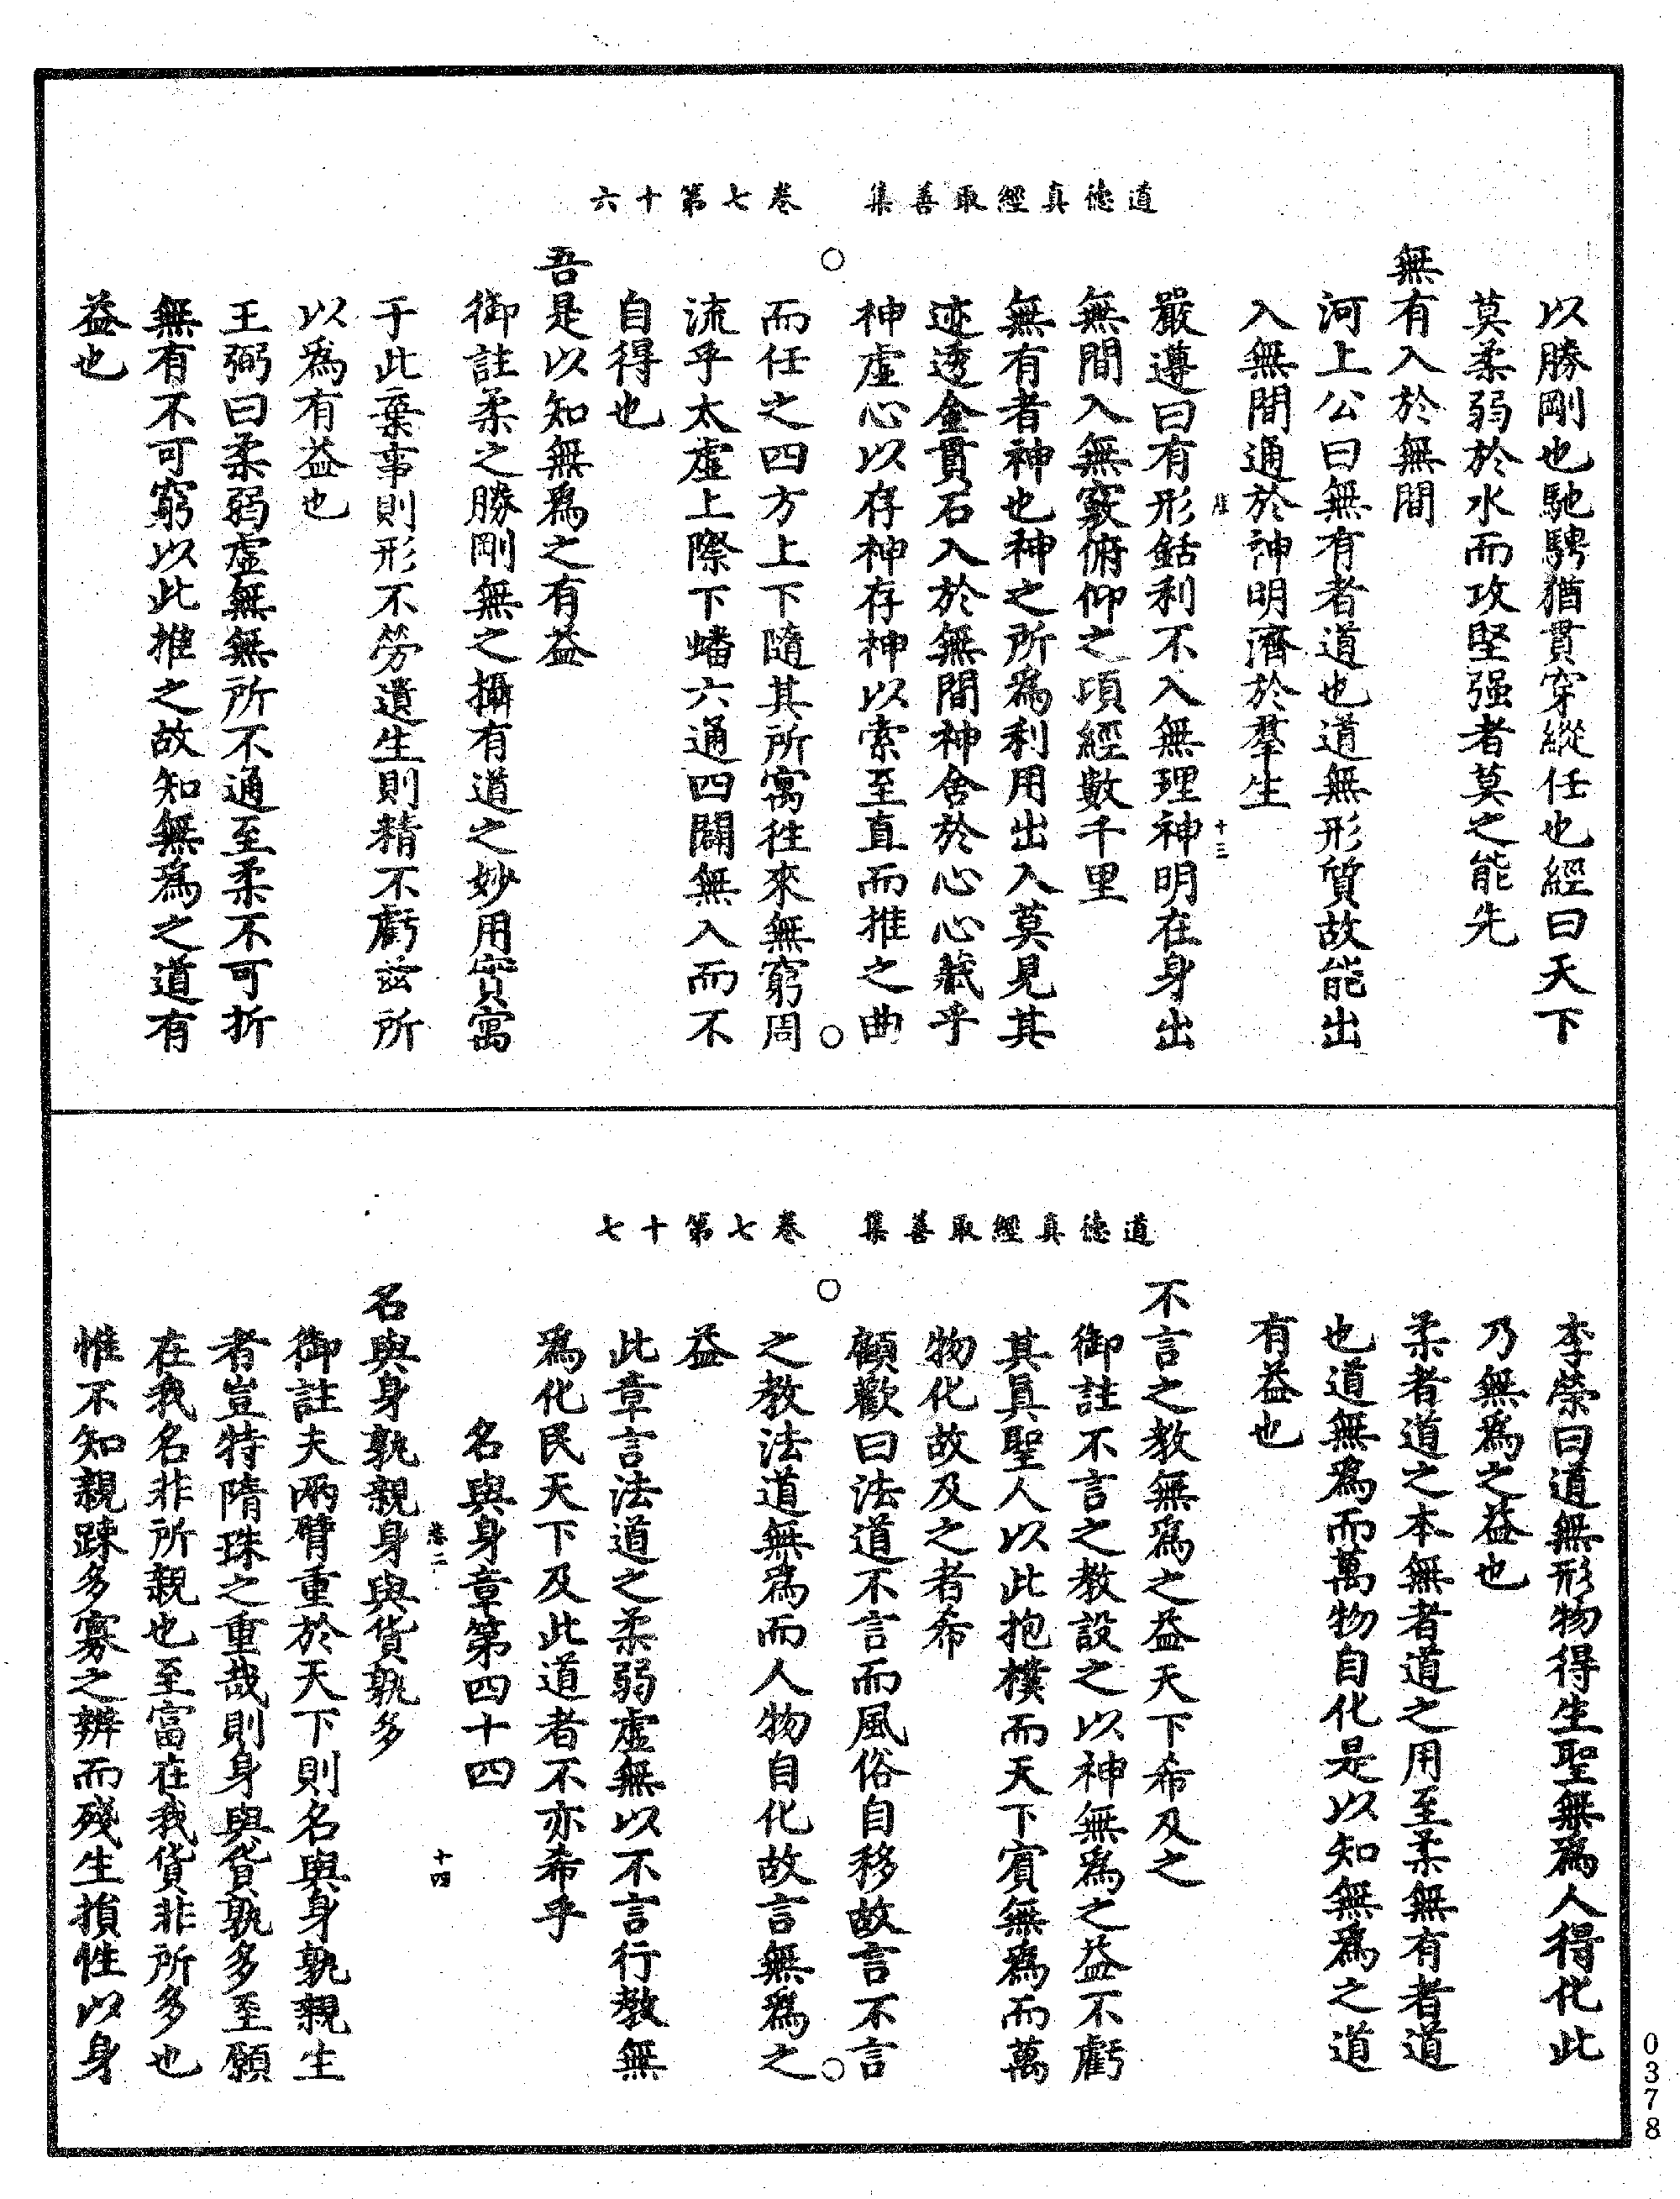 道德真經取善集　卷七第十六
以勝剛也馳騁猶貫穿縱任也經曰天下
莫柔弱於水而攻堅强者莫之能先
無有入於無間
河上公曰無有者道也道無形質故能出
入無間通於神明濟於羣生
十三
嚴遵曰有形銛利不入無理神明在身出
無間入無竅俯仰之頃經數千里
無有者神也神之所爲利用出入莫見其
迹透金貫石入於無間神舍於心心藏乎
神虛心以存神存神以索至直而推之曲
而任之四方上下隨其所寓往來無窮周
流乎太虛上際下蟠六通四闢無入而不
自得也
吾是以知無爲之有益
御註柔之勝剛無之攝有道之妙用實寓
于此棄事則形不勞遺生則精不虧茲所
以爲有益也
王弼曰柔弱虛無無所不通至柔不可折
無有不可窮以此推之故知無爲之道有
益也
道德真經取善集　卷七第十七
李榮曰道無形物得生聖無爲人得化此
乃無爲之益也
柔者道之本無者道之用至柔無有者道
也道無爲而萬物自化是以知無爲之道
有益也
不言之教無爲之益天下希及之
御註不言之教設之以神無爲之益不虧
其真聖人以此抱樸而天下賓無爲而萬
物化故及之者希
顧歡曰法道不言而風俗自移故言不言
之教法道無爲而人物自化故言無爲之
益
此章言法道之柔弱虛無以不言行教無
爲化民天下及此道者不亦希乎
名與身章第四十四
卷二　十四
名與身孰親身與貨孰多
御註夫兩臂重於天下則名與身孰親生
者豈特隋珠之重哉則身與貨孰多至願
在我名非所親也至富在我貨非所多也
惟不知親踈多寡之辨而殘生損性以身
0378